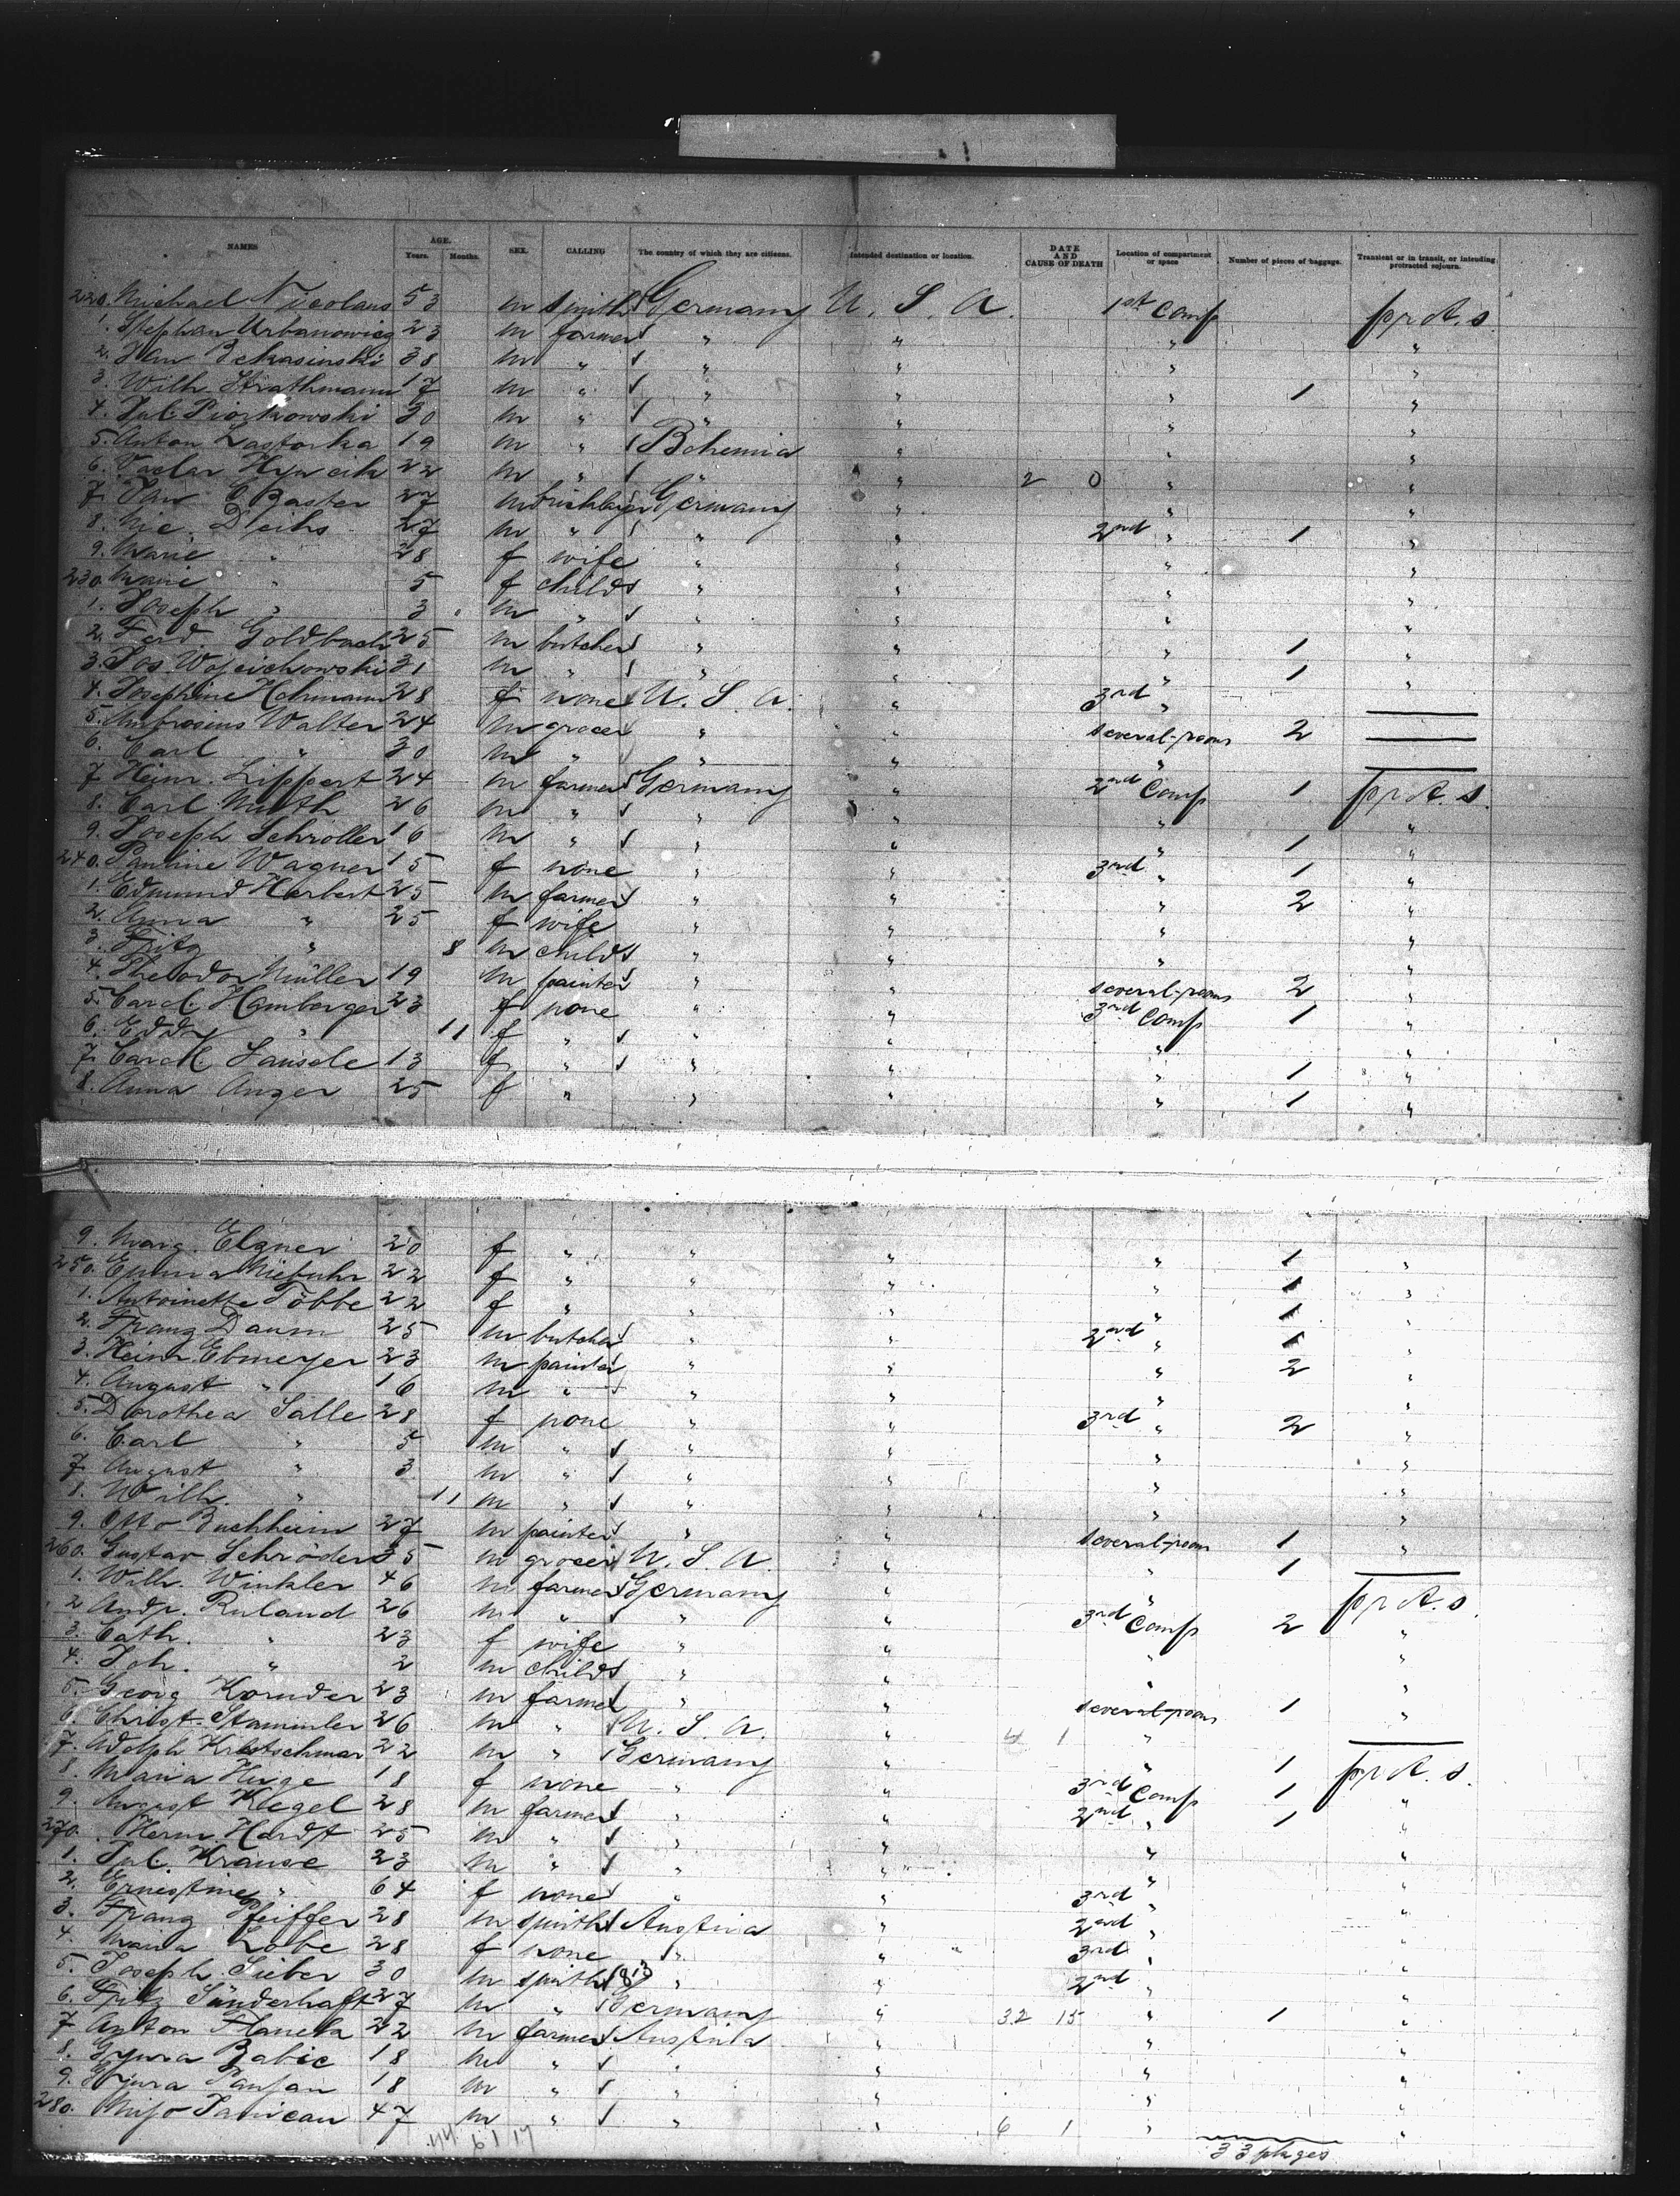 NAMES AGE. Years. Months. SEX. CALLING The country of which they are citizens. Intended destination or location. DATE AND CAUSE OF DEATH Location of compartment or space Number of pieces of baggage. Transient or in transit, or intending protracted sojourn.
220. Michael Nicolaus 53 m smith Germany U. S. A. 1st Comp prot. s.
1. Stephan Urbanowicz 23 m farmer " " " "
2. Jan 38 m " " " " "
3. Wilh. Strathmann 17 m " " " " 1 "
4. Jul. Piotrkowski 30 m " " " " "
5. Anton 19 m " Bohemia " " "
6. Vaclav 22 m " " " 2 0 " "
7. Jan 27 m bricklayer Germany " " "
8. Nic. 27 m " " " 2nd " 1 "
9. Marie " 28 f wife " " " "
230. Marie " 5 f child " " " "
1. Joseph " 3 m " " " " "
2. Ferd. Goldbach 25 m butcher " " " 1 "
3. Jos. Wojcichowski 31 m " " " " 1 "
4. Josephine Hohmann 28 f none U. S. A. " 3rd "
5. Ambrosius Walter 24 m grocer " " several-rooms 2
6. Carl " 30 m " " " "
7. Heinr. Lippert 24 m farmer Germany " 2nd Comp 1 prot. s.
8. Carl Muth 26 m " " " " "
9. Joseph Schroller 16 m " " " " 1 "
240. Pauline Wagner 15 f none " " 3rd " 1 "
1. Edmund Herbert 25 m farmer " " " 2 "
2. Anna " 25 f wife " " " "
3. Fritz " 8 m child " " " "
4. Theodor Müller 19 m painter " " several-rooms 2 "
5. Carol. Hamberger 23 f none " " 3rd Comp 1 "
6. Eddy " 11 f " " " " "
7. 13 f " " " " 1 "
8. Anna Anger 25 f " " " " 1 "
9. Marg. Elsner 20 f " " " " 1 "
250. Emma Niebuhr 22 f " " " " 1 "
1. Antoinette Többe 22 f " " " " 1 "
2. Franz Daum 25 m butcher " " 2nd " 1 "
3. Heinr. Ebmeyer 23 m painter " " " 2 "
4. August " 16 m " " " " "
5. Dorothea Salle 28 f none " " 3rd " 2 "
6. Carl " 5 m " " " " "
7. August " 3 m " " " " "
8. Wilh. " 11 m " " " " "
9. Otto Buchheim 27 m painter " " several-rooms 1 "
260. Gustav Schröder 35 m grocer U. S. A. " " 1
1. Wilh. Winkler 46 m farmer Germany " " prot. s.
2. Andr. Ruland 26 m " " " 3rd Comp 2 "
3. Cath. " 23 f wife " " " "
4. Joh. " 2 m child " " " "
5. Georg Kornder 23 m farmer " " several-rooms 1 "
6. Christ. Stammler 26 m " U. S. A. " 4 1 "
7. Adolph Kretschmar 22 m " Germany " " 1 prot. s.
8. Maria Huge 18 f none " " 3rd Comp 1 "
9. August Kegel 28 m farmer " " 2nd " 1 "
270. Herm. Hardt 25 m " " " " "
1. Jul. Krause 23 m " " " " "
2. Ernestine " 64 f none " " 3rd " "
3. Franz Pfeiffer 28 m smith Austria " 2nd " "
4. Maria Lobe 28 f none " " 3rd " "
5. Joseph Sieber 30 m smith " " 2nd " "
6. Fritz Sünderhaft 27 m " Germany " 32 15 " 1 "
7. Anton 22 m farmer Austria " " "
8. Gyura Babic 18 m " " " " "
9. Gyura 18 m " " " " "
280. 47 m " " " 6 1 " "
44 61 17